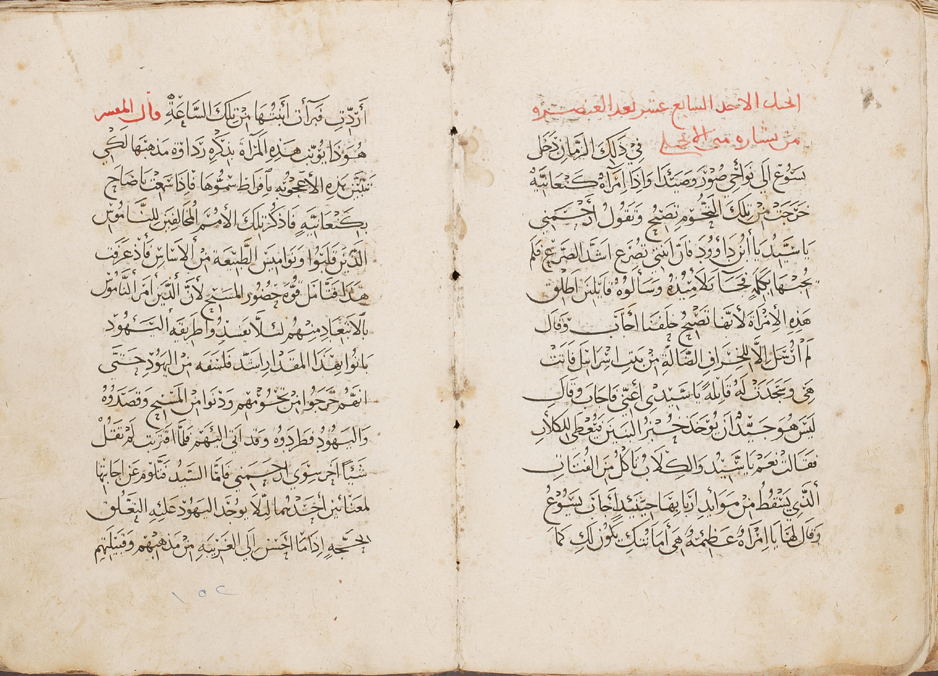 الاحد السابع عشر بعد العنصره
من بشاره متى الانجيلي
في ذلك الزمان دخل
يسوع الى نواحي صور وصيدا واذا امراه كنعانيه
خرجت من تلك التخوم تصيح وتقول ارحمني
يا سيد يا ابن داوود فان ابنتي تصرع اشد الصرع فلم
يجبها بكلمه فجا تلاميذه وسالوه قايلين اطلق
هذه الامراة لانها تصيح خلفنا اجاب وقال
لم ارسل الا للخراف الضالة من بيت اسرايل فاتت
هي وسجدت له قايلة يا سيدي اغثني فاجاب وقال
ليس هو جيد ان يوخذ خبز البنين فيعطى للكلاب
فقالت نعم يا سيد والكلاب تاكل من الفتات
الذي يسقط من موايد اربابها حينيذ اجاب يسوع
وقال لها يا امراه عظيمه هي امانتك يكون لك كما
اردتي فبرأت ابنتها من تلك الساعة قال المفسر
هوذا يوتب هذه المراة بذكره رداوة مذهبها لكي
يتبين بهذه الاعجوبه فاذا سمعت يا صاح
بكنعانيه فاذكر تلك الامم المخالفين للناموس
الذين قلبوا نواميس الطبيعة من الاساس فاذ عرفت
هذا فتامل قوة حضور المسيح لأن الذين امر الناموس
بالابعاد منهم لكلا طريقه اليهود
بانوا بهذا المقدار اسد فلسفه من اليهود حتى
انهم خرجوا من تخومهم ودنوا من المسيح وقصدوه
واليهود فطردوه وقد اتى اليهم فلما اقتربت لم تقل
شيا اخر سوى ارحمني فاما السيد فتلوم عن اجابتها
لمعنايين احدهما ليلا يوجد اليهود عليه التعلق
الحجه اذا ما احسن الى الغريبه من مذهبهم وقبلتهم
١٥٢